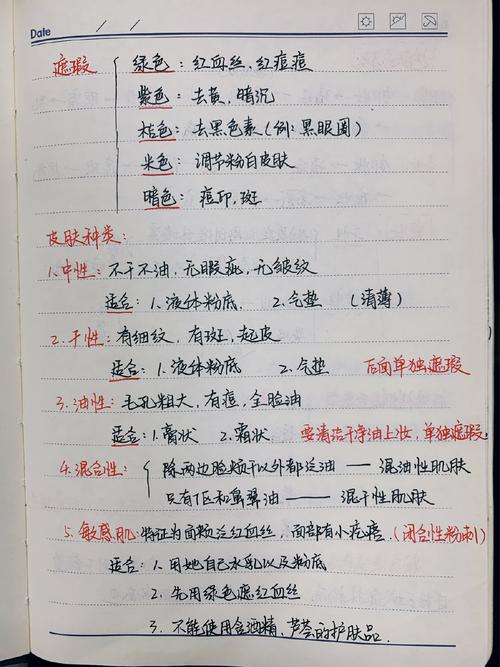 Date
遮瑕 绿色：红血丝，红痘痘
紫色：去黄，暗沉
桔色：去黑色素（例：黑眼圈）
米色：调节粉白皮肤
暗色：痘印，斑
皮肤种类：
1.中性：不干不油，无瑕疵，无皱纹
适合：1.液体粉底 2.气垫 （清薄）
2.干性：有细纹，有斑，起皮
适合：1.液体粉底 2.气垫 后面单独遮瑕
3.油性：毛孔粗大，有痘，全脸油
适合：1.膏状 2.霜状 要清洁干净油上妆，单独遮瑕
4.混合性：除两边脸颊干以外都泛油——混油性肌肤
只有T区和鼻翼油——混干性肌肤
5.敏感肌：特征为面颊泛红血丝，面部有小疙瘩（闭合性粉刺）
适合：1.用她自己水乳以及粉底
2.先用绿色遮红血丝
3.不能使用含酒精，芦荟的护肤品